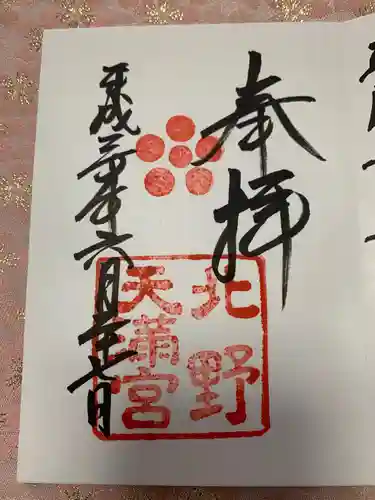 奉拝
北野
天満宮
平成三十年六月十七日